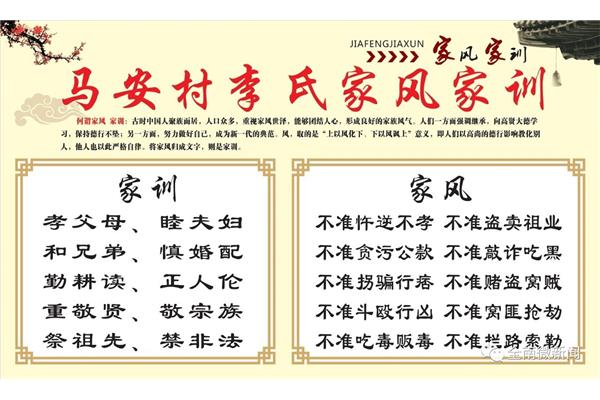 JIAFENGJIAXUN
家风家训
马安村李氏家风家训
何谓家风 家训：古时中国人聚族而居，人口众多，重视家风世泽，能够团结人心，形成良好的家族风气。人们一方面强调继承，向高贤大德学
习，保持德行不坠；另一方面，努力做好自己，成为新一代的典范。风，取的是“上以风化下、下以风讽上”意义，即人们以高尚的德行影响教化别
人，他人也以此严格自律。将家风归成文字，则是家训。
家训
孝父母、睦夫妇
和兄弟、慎婚配
勤耕读、正人伦
重敬贤、敬宗族
祭祖先、禁非法
家风
不准忤逆不孝 不准盗卖祖业
不准贪污公款 不准敲诈吃黑
不准拐骗行痞 不准赌盗窝贼
不准斗殴行凶 不准窝匪抢劫
不准吃毒贩毒 不准拦路索勒
全南微新闻